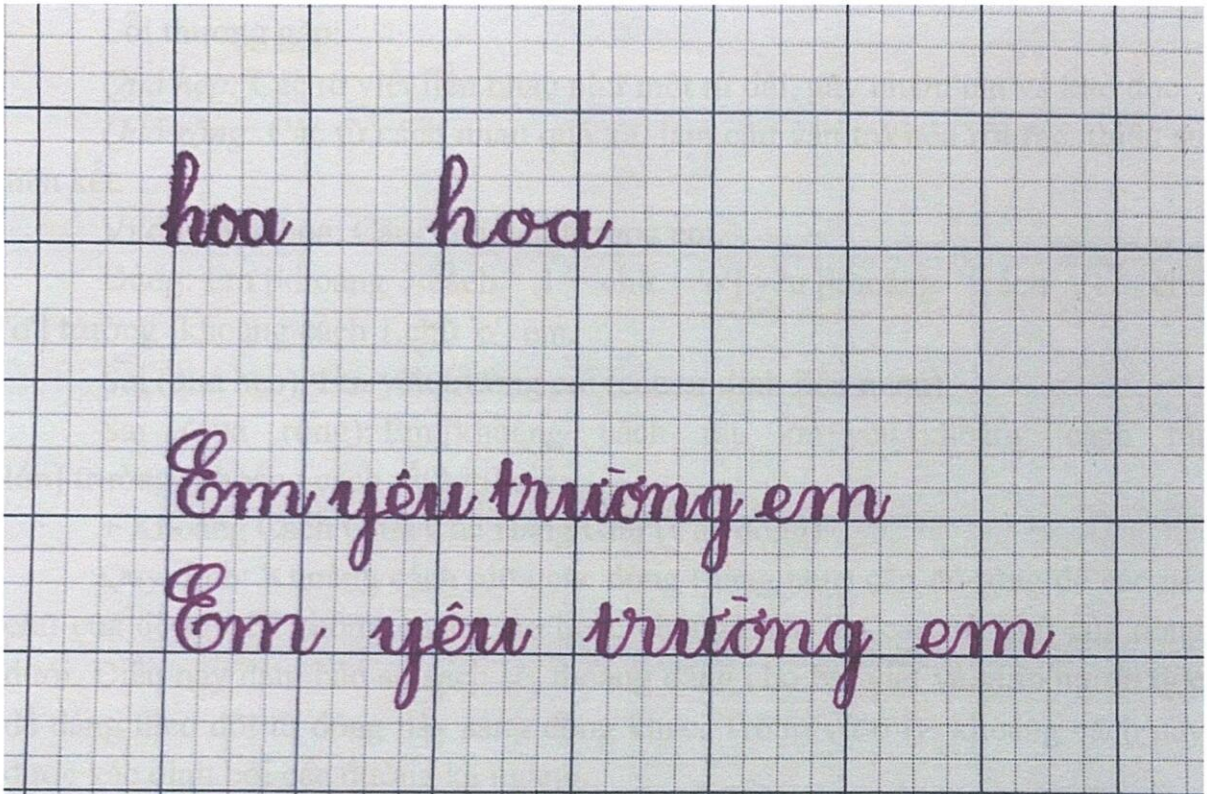 hoa hoa
Em yêu trường em
Em yêu trường em